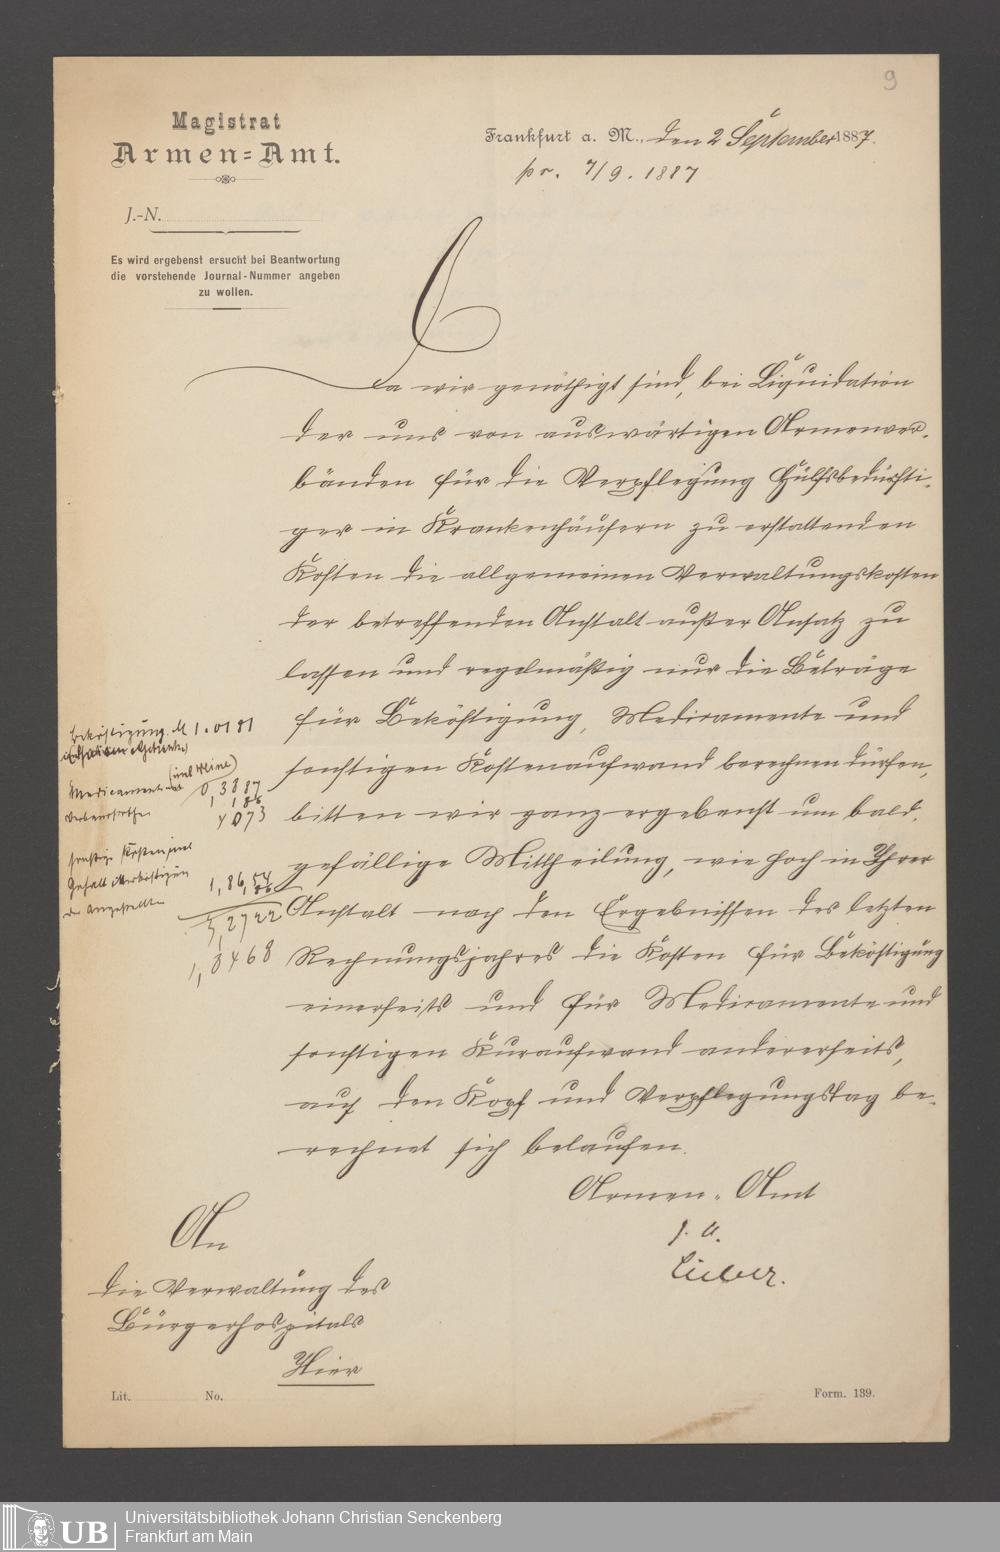 9
Magistrat
Armen=Amt.
Frankfurt a. M., den 2 September 1887.
pr. 7/9. 1887
J.-N.
Es wird ergebenst ersucht bei Beantwortung
die vorstehende Journal-Nummer angeben
zu wollen.
Da wir genöthigt sind, bei Liquidation
der uns von auswärtigen Armenver-
bänden für die Verpflegung Hülfsbedürfti-
ger in Krankenhäusern zu erstattenden
Kosten die allgemeinen Verwaltungskosten
der betreffenden Anstalt außer Ansatz zu
lassen und regelmäßig nur die Beträge
für Beköstigung, Medicamente und
sonstigen Kostenaufwand berechnen dürfen,
bitten wir ganz ergebenst um bald-
gefällige Mittheilung, wie hoch in Ihrer
Anstalt nach den Ergebnissen des letzten
Rechnungsjahres die Kosten für Beköstigung
einerseits und für Medicamente und
sonstigen Kuraufwand andererseits,
auf den Kopf und Verpflegungstag be-
rechnet sich belaufen.
Armen-Amt
J. A.
Beköstigung M 1.0181
(inl Weine)
Medicamente 0,3887
186
4073
sonstige Kosten inl
Gehalt
der Angestellten
1,8654
5,2722
1,8468
An
die Verwaltung des
Bürgerhospitals
Hier
Lit. No.
Form. 139.
UB
Universitätsbibliothek Johann Christian Senckenberg
Frankfurt am Main